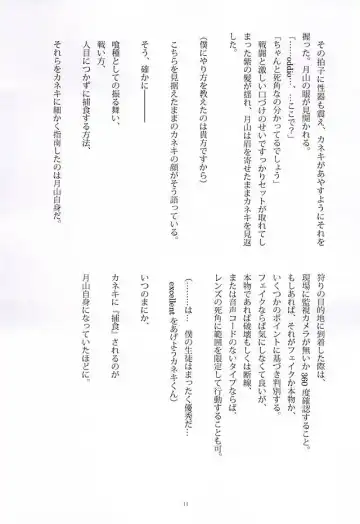 その拍子に性器も震え、カネキがあやすようにそれを
握った。月山の眼が見開かれる。
「……oddio……、……どこで？」
「ちゃんと死角なの分かってるでしょう」
戦闘と激しい口づけのせいですっかりセットが取れてし
まった紫の髪が揺れ、月山は肩を寄せたままカネキを見返
した。
(僕にやり方を教えたのは貴方ですから)
こちらを見据えたままのカネキの顔がそう語っている。
そう、確かに――
喰種としての振る舞い、
戦い方、
人目につかずに捕食する方法、
それらをカネキに細かく指南したのは月山自身だ。
狩りの目的地に到着した際は、
現場に監視カメラが無いか 360 度確認すること。
もしあれば、それがフェイクか本物か、
いくつかのポイントに基づき判別する。
フェイクならば気にしなくて良いが、
本物であれば破壊もしくは断線、
または音声コードのないタイプならば、
レンズの死角に範囲を限定して行動することも可。
(………は… 僕の生徒はまったく優秀だ。
excellent をあげようカネキくん)
いつのまにか、
カネキに『捕食』されるのが
月山自身になっていたほどに。
11